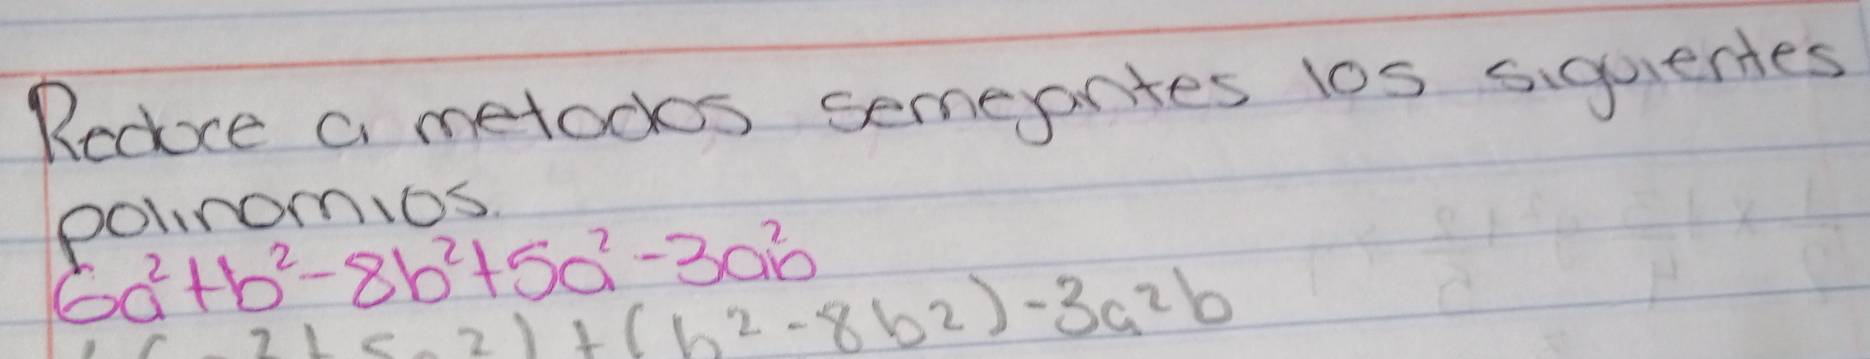 Reduce a metodos semejantes los siguientes
polinomios.
6a²+b²-8b²+5a²-3a²b
2+5a2)+(b2-8b2)-3a2b